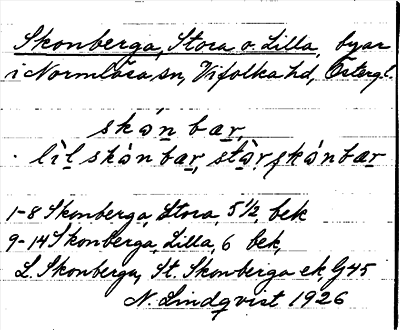 Skonberga, Stora o. Lilla, byar
i Normlösa sn, Vifolka hd, Östergl.
skə́n bær,
lìl skə̀n bær, stòr skə́n bær
1-8 Skonberga, Stora, 5 1/2, bek
9-14 Skonberga, Lilla, 6 bek,
L. Skonberga, St. Skonberga ek, G45
N. Lindqvist 1926